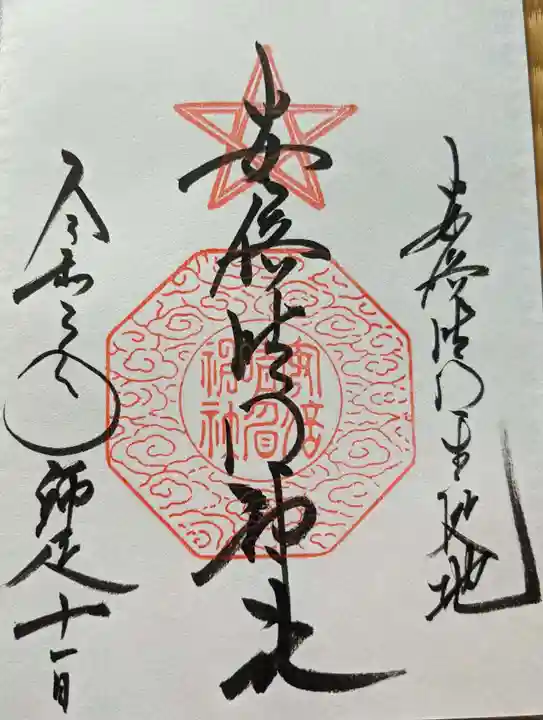 安倍晴明生誕地
安倍晴明神社
安倍
晴明
神社
令和三年師走十一日